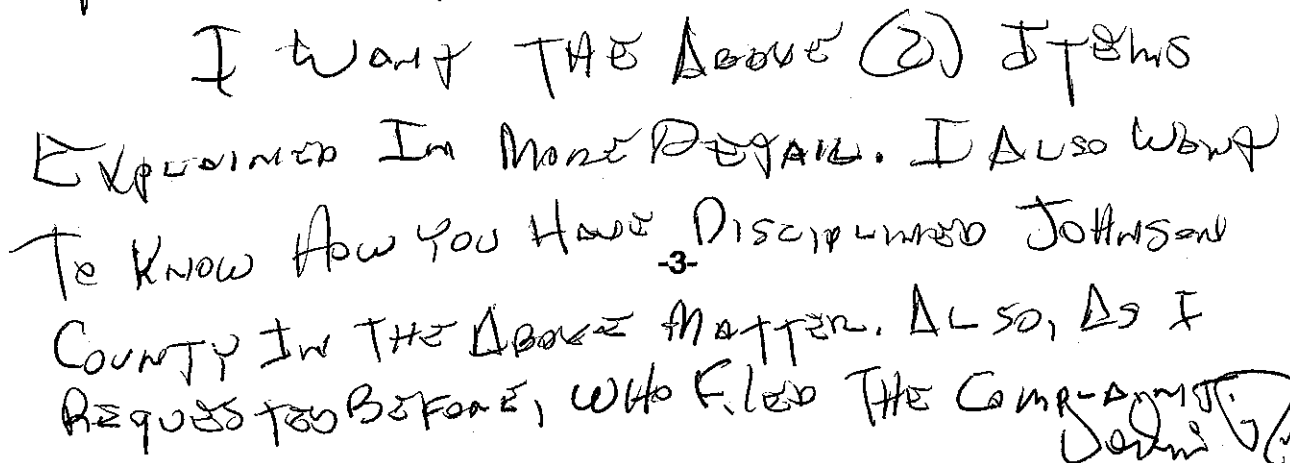 I Want THE ABOVE (2) ITEMS
EXPLAINED IN MORE DETAIL. I ALSO WANT
To KNOW HOW YOU HAVE DISCIPLINED JOHNSON
-3-
COUNTY IN THE ABOVE MATTER. ALSO, AS I
REQUESTED BEFORE, WHO FILED THE COMPLAINT?